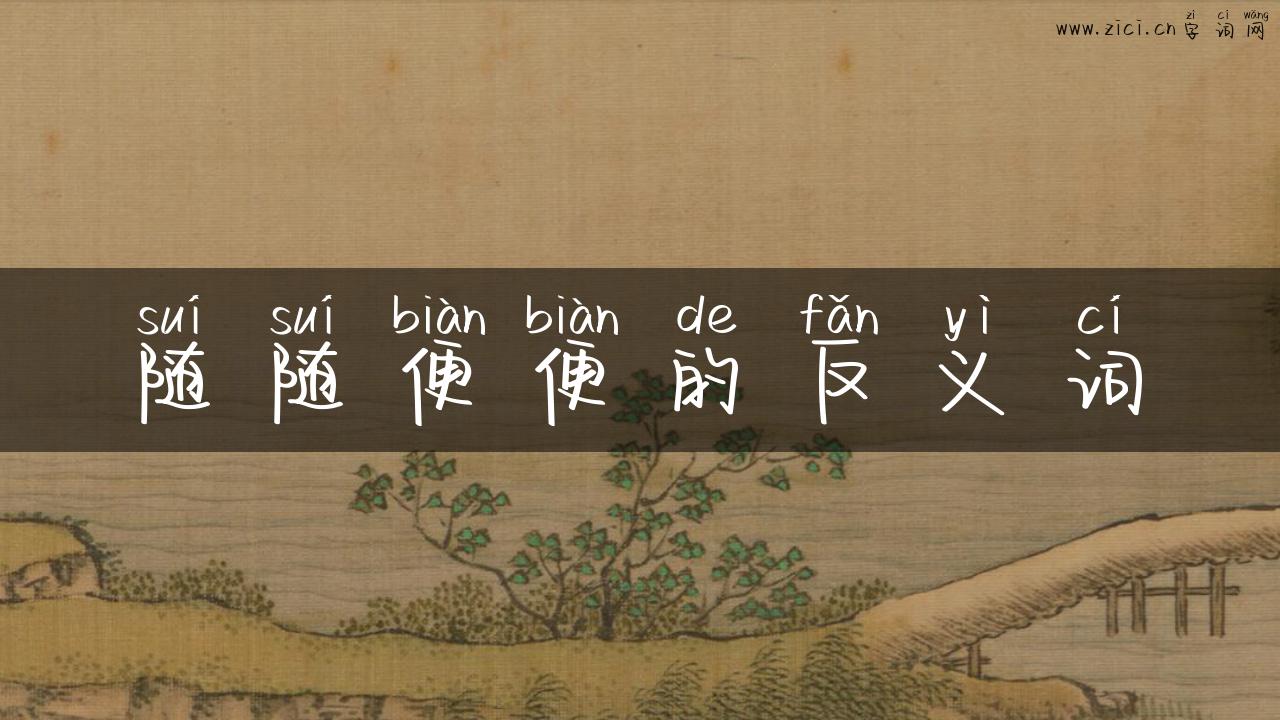 zì cí wǎng
www.zici.cn字词网
suí suí biàn biàn de fǎn yì cí
随随便便的反义词